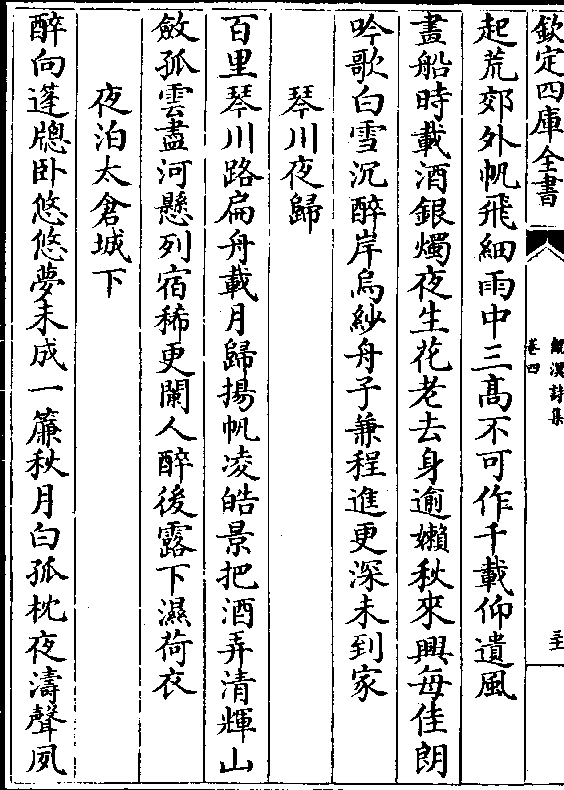 欽定四庫全書
觀漢詩集
卷四
至
起荒郊外帆飛細雨中三髙不可作千載仰遺風
畫船時載酒銀燭夜生花老去身逾嬾秋來興每佳朗
吟歌白雪沉醉岸烏紗舟子兼程進更深未到家
琴川夜歸
百里琴川路扁舟載月歸揚帆凌皓景把酒弄清輝山
斂孤雲盡河懸列宿稀更闌人醉後露下濕荷衣
夜泊太倉城下
醉向蓬牎卧悠悠夢未成一簾秋月白孤枕夜濤聲夙